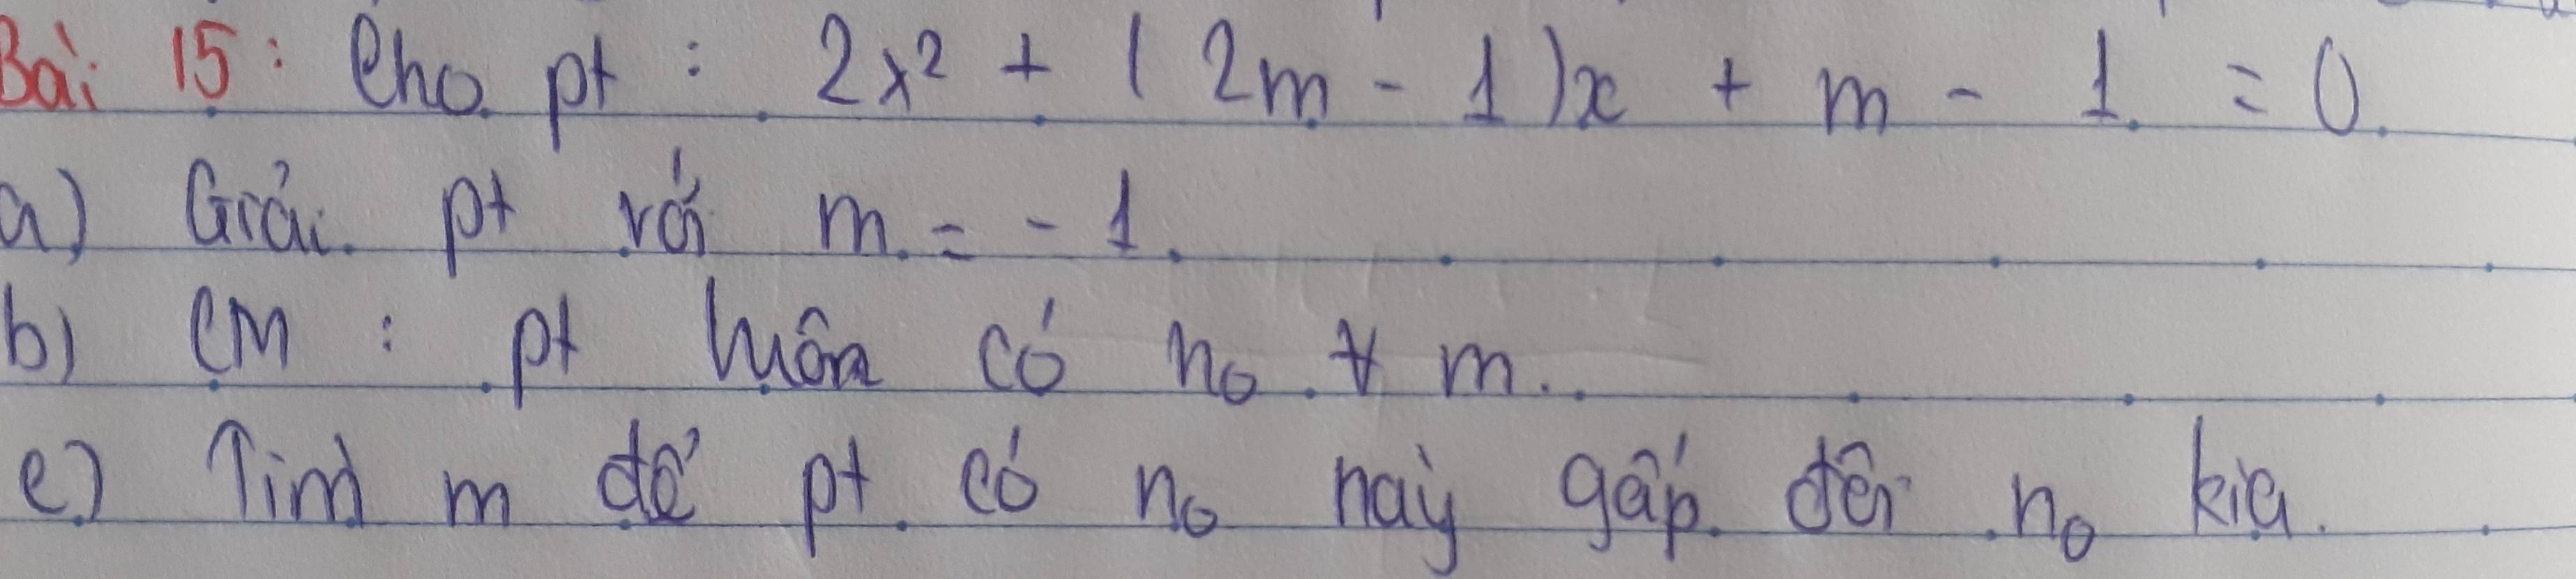 Bài 15: Cho pt : 2x² + (2m - 1)x + m - 1 = 0.
a) Giải pt với m = -1.
b) CM : pt luôn có n₀ ∀ m.
c) Tìm m để pt có n₀ này gấp đôi n₀ kia.